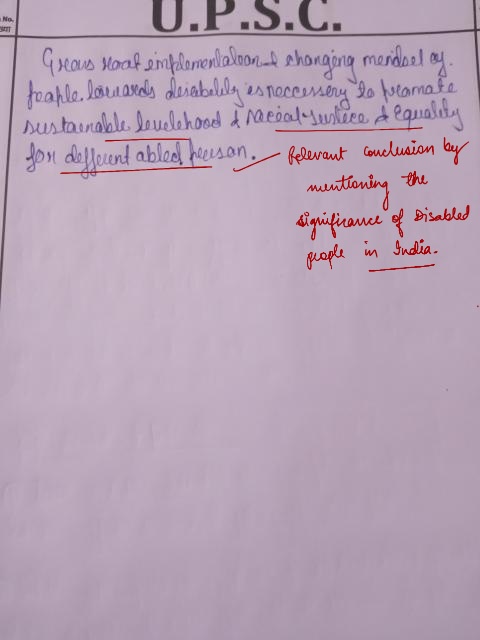 No.
U.P.S.C.
Grass root implementation & changing mindset of
people towards disability is neccessery to promate
sustainable levelehood & Social Justice & Equality
for defferent abled person.
Relevant conclusion by
mentioning the
significance of Disabled
people in India.